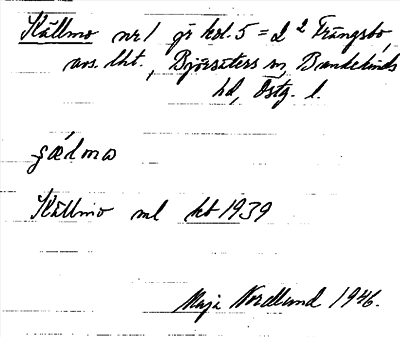 Källmo nr 1 gr kol. 5 = L 2 Trängsbo,
avs. lht., Björsäters sn, Bankekinds
hd, Östg. l.
Källmo ml kb 1939
Maja Nordlund 1946.